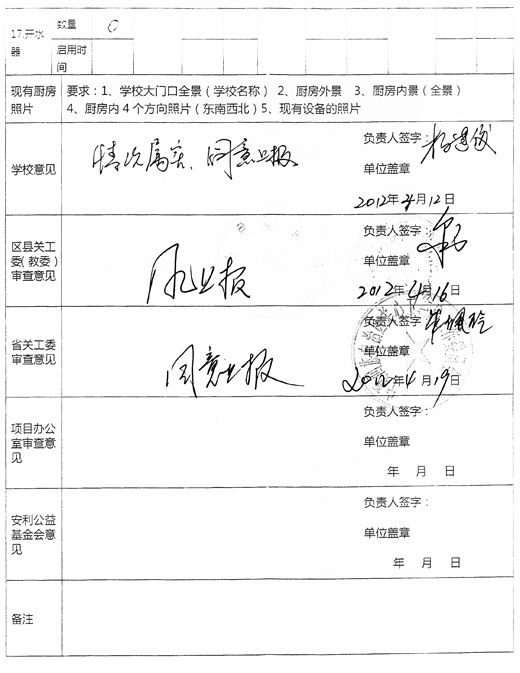 17.开水器
数量 0
启用时间
现有厨房照片
要求：1、学校大门口全景（学校名称） 2、厨房外景 3、厨房内景（全景）
4、厨房内4个方向照片（东南西北）5、现有设备的照片
学校意见
情况属实、同意上报
负责人签字：
单位盖章
2012年4月12日
区县关工委（教委）审查意见
同意上报
负责人签字：
单位盖章
2012年4月16日
省关工委审查意见
同意上报
负责人签字：
单位盖章
2012年4月19日
项目办公室审查意见
负责人签字：
单位盖章
年 月 日
安利公益基金会意见
负责人签字：
单位盖章
年 月 日
备注